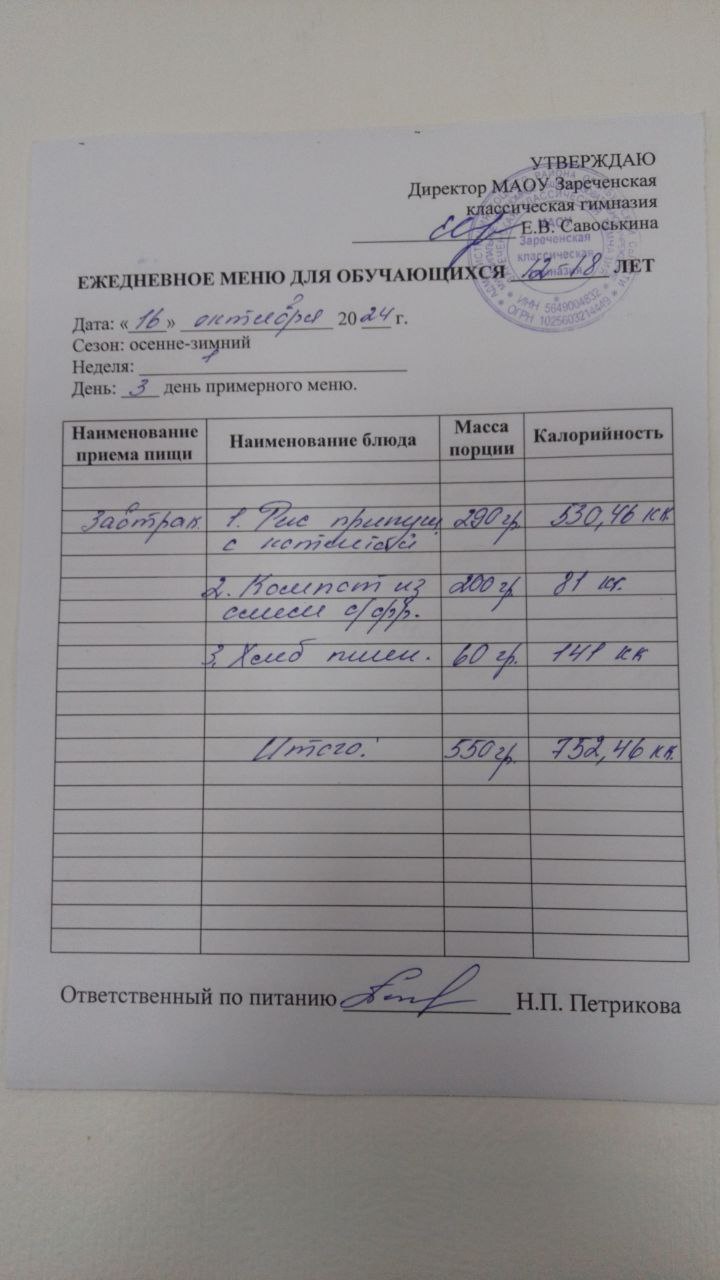 УТВЕРЖДАЮ
Директор МАОУ Зареченская
классическая гимназия
Е.В. Савоськина
МАОУ
Зареченская
классическая
гимназия
* ИНН 5649004832 *
* ОГРН 1025603214449 *
ЕЖЕДНЕВНОЕ МЕНЮ ДЛЯ ОБУЧАЮЩИХСЯ 12-18 ЛЕТ
Дата: «16» октября 2024 г.
Сезон: осенне-зимний
Неделя: 1
День: 3 день примерного меню.
Наименование приема пищи Наименование блюда Масса порции Калорийность
Завтрак 1. Рис припущ 290 гр. 530,46 кк
с котлетой
2. Компот из 200 гр 81 кк.
смеси с/фр.
3. Хлеб пшен. 60 гр. 141 кк
Итого: 550 гр. 752,46 кк.
Ответственный по питанию Н.П. Петрикова